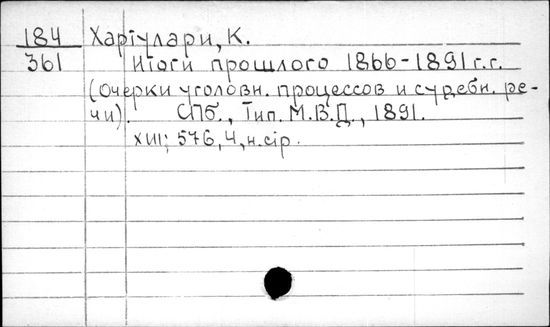 184 Харіулари, К.
361 Итоги прошлого 1866-1891 г.г.
(Очерки уголовн. процессов и судебн. ре-
чи). СПб., Тип. М.В.Д., 1891.
XIII; 576, 4, н. сір.